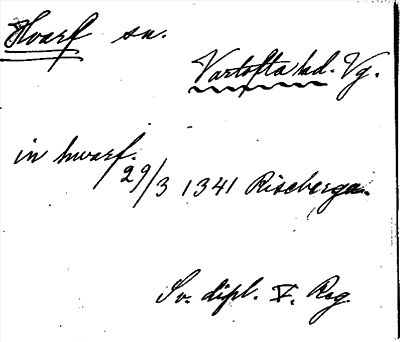 Hvarf sn.
Vartofta hd. Vg.
in hwarf.
29/3 1341 Riseberga.
Sv. dipl. V. Reg